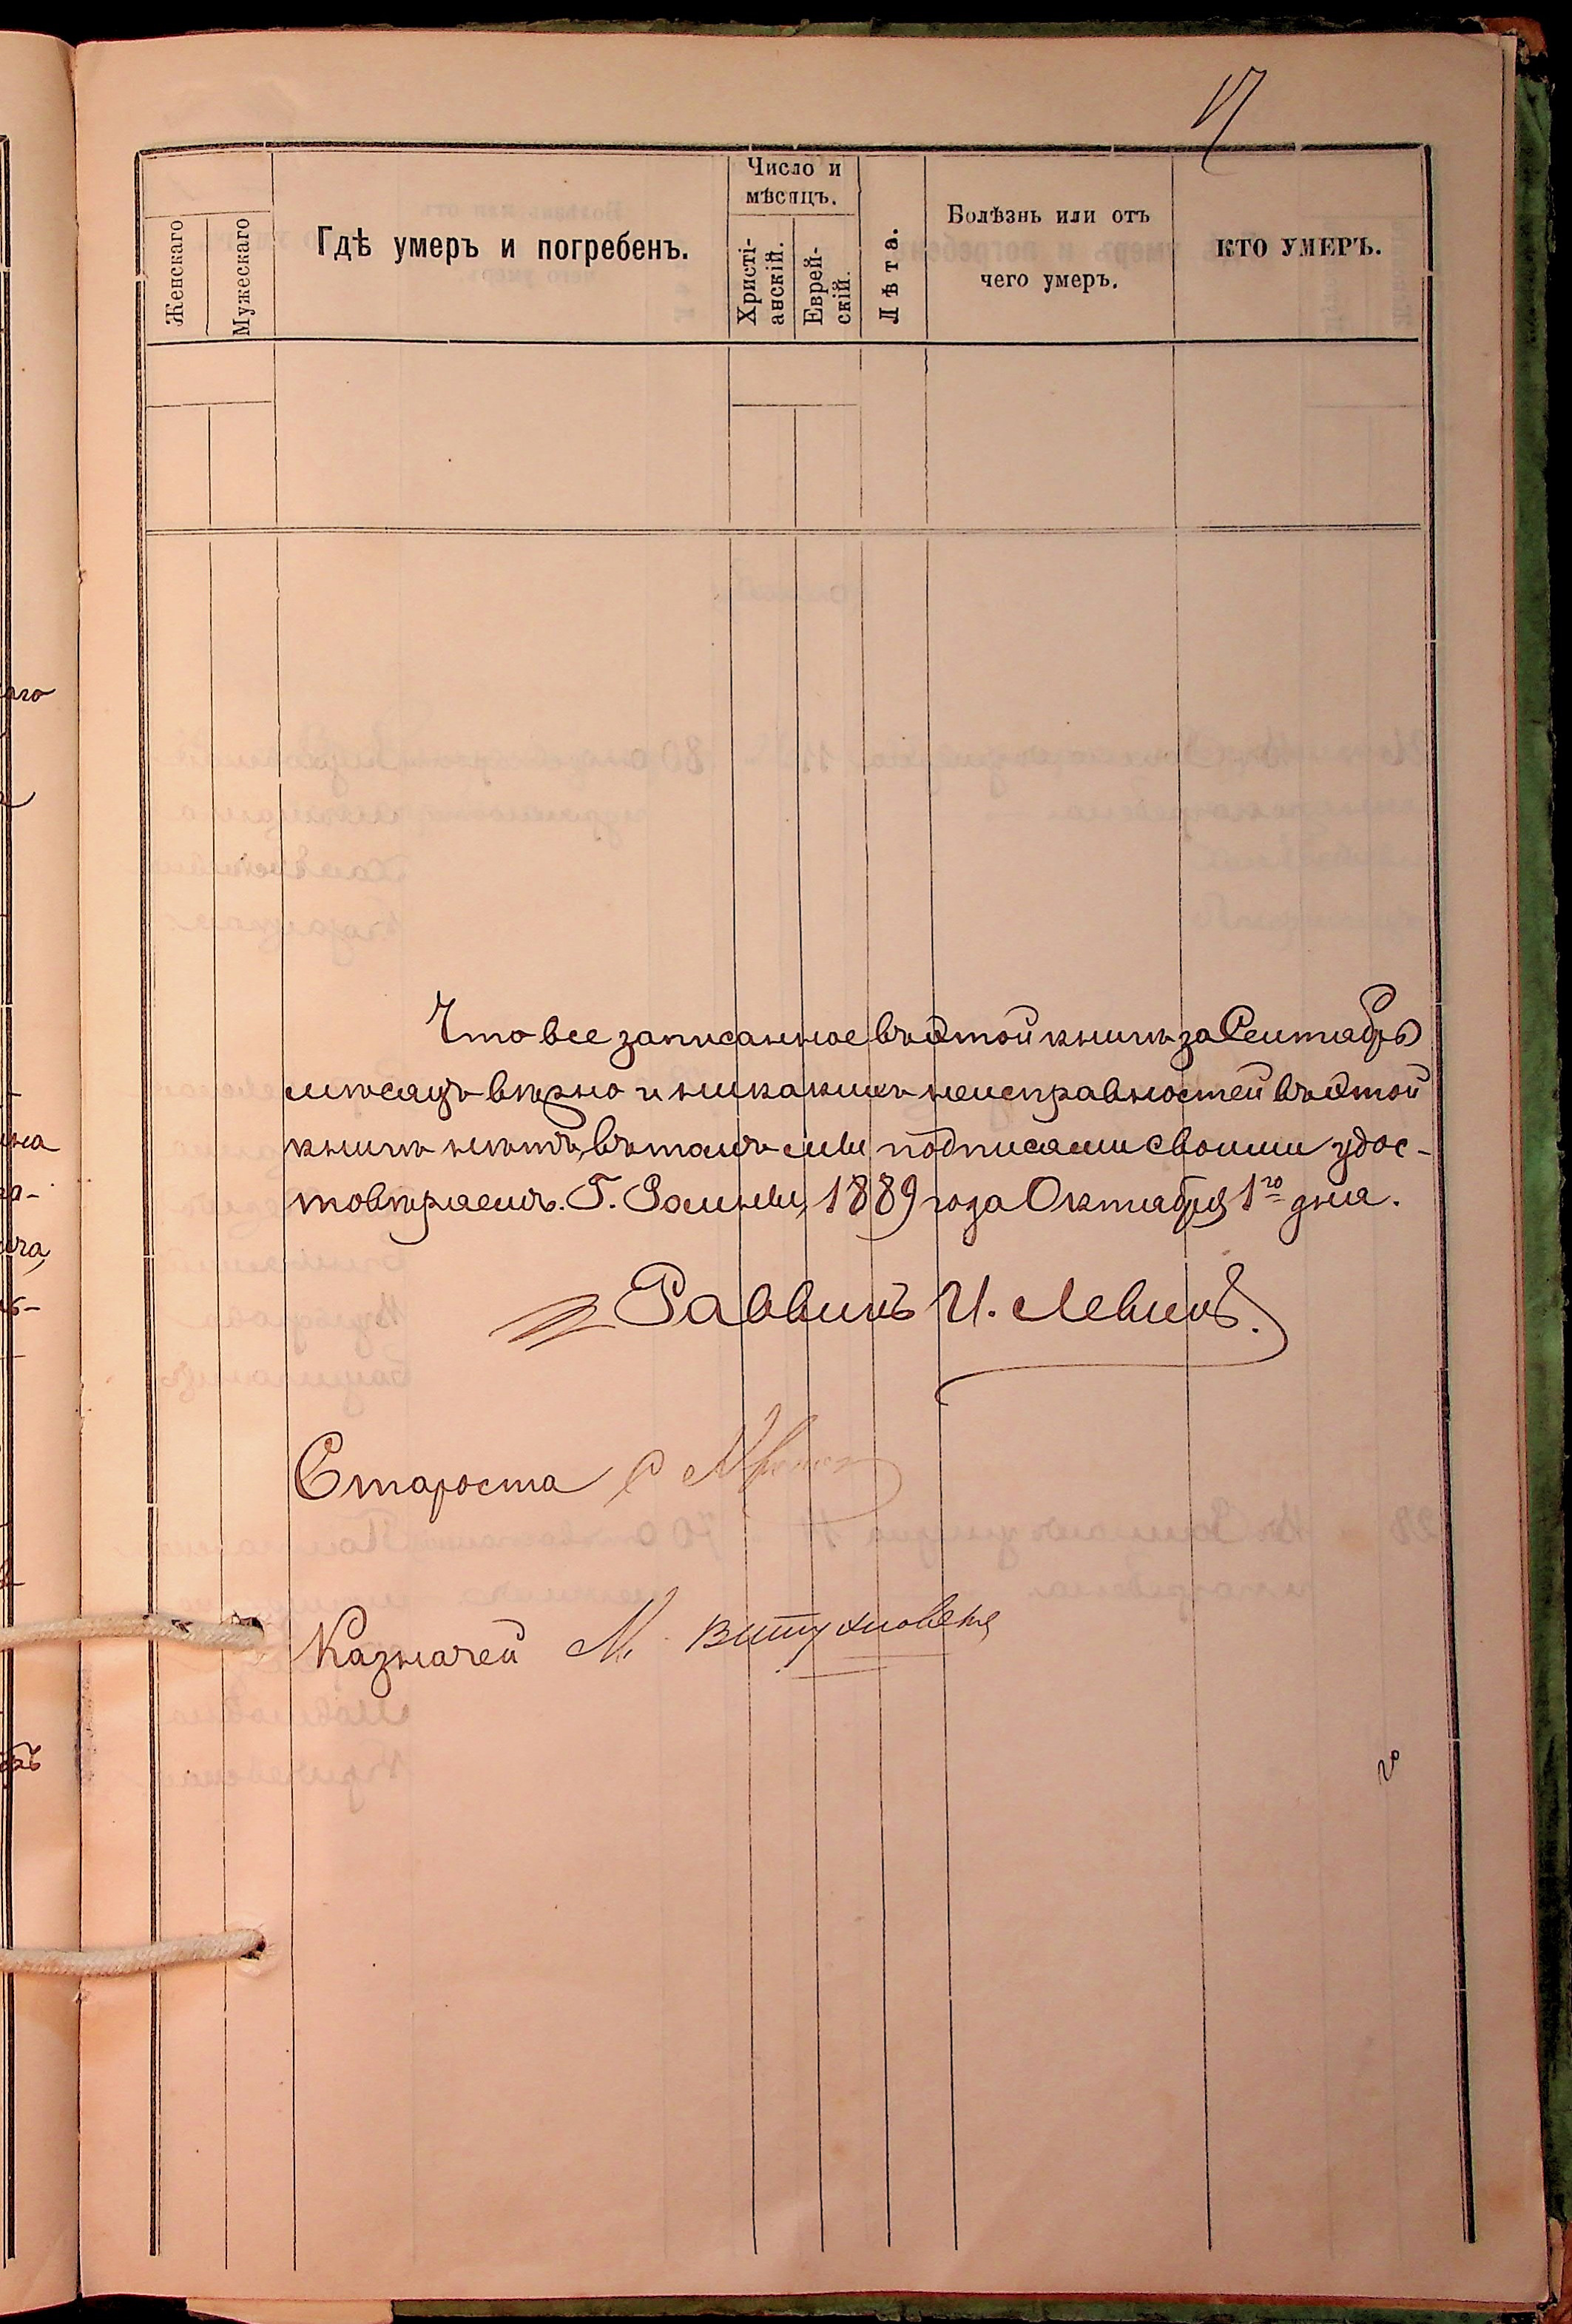 17
Женскаго
Мужескаго
Гдѣ умеръ и погребенъ.
Число и
мѣсяцъ.
Христі-
анскій.
Еврей-
скій.
Лѣта.
Болѣзнь или отъ
чего умеръ.
КТО УМЕРЪ.
Что все записанное въ этой книгѣ за Сентябрь
мѣсяцъ вѣрно и никакихъ неисправностей въ этой
книгѣ нѣтъ, въ томъ мы подписами своими удос-
товѣряемъ. Г. Ромны, 1889 года Октября 1го дня.
Раввинъ И. Левинъ.
Староста С
Казначей М.